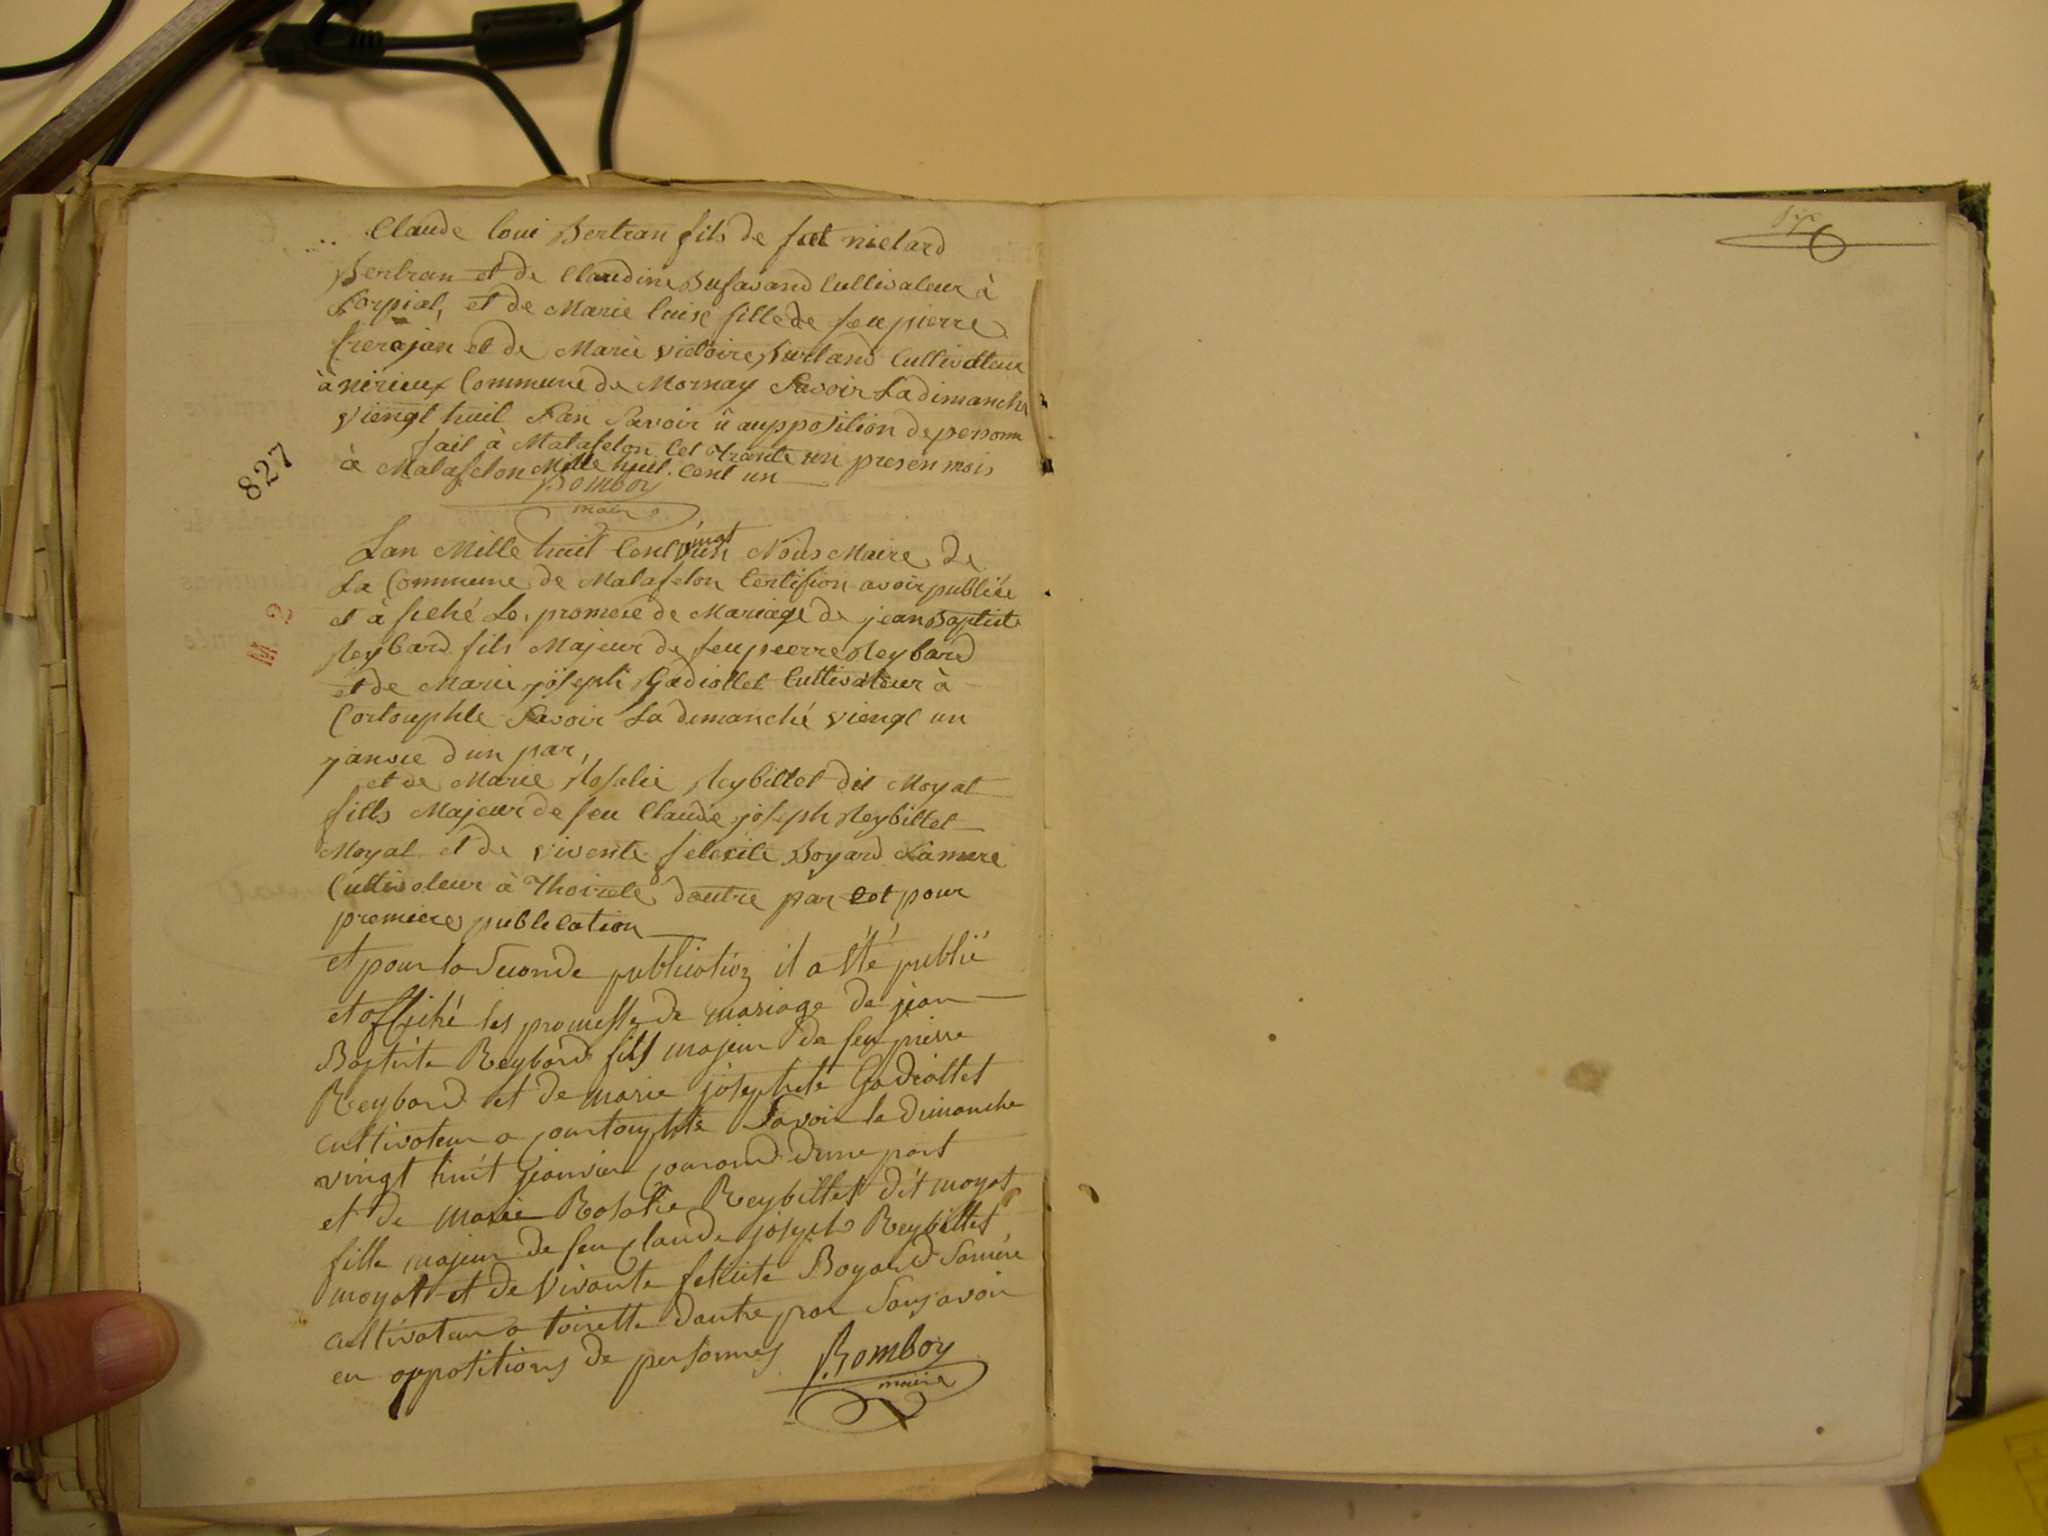 Claude loui Bertran fils de
Bertran et de Claudine Bufavand Cultivateur à
Corpial, et de Marie luise fille de feu pierre
et de Marie victoire Burland Cultivateur
à nirieux Commune de Mornay Savoir La dimanche
viengt huil San Savoir u aupposition de personn
fail à Matafelon Cet Trante un presen mois
à Matafelon Mille huit Cent un
Bomboy
maire
827
Lan Mille huit Cent vingt un Nous Maire de
La Commune de Matafelon Certifion avoir publiée
et à fiché Le promese de Mariage de jean Baptiste
Reybard fils Majeur de feu pierre Reybard
et de Marie joseph Gadiollet Cultivateur à
Cortouphle Savoir La dimanche viengt un
janvie dun par,
et de Marie Rosalie Reybillet dit Moyat
fills Majeur de feu Claude joseph Reybillet
Moyat et de vivente felecite Boyard La mere
Cultivateur à Thoirete dautre par Cet pour
premiere publication
et pour la Seconde publication il a été publié
et affiché les promesse de mariage de jean
Baptiste Reybard fils majeur de feu pierre
Reybard et de marie josephete Gadiollet
cultivateur a courtouphle Savoir le dimanche
vingt huit jeanvier courand dune part
et de marie Rosalie Reybillet dit moyat
fille majeur de feu claude joseph Reybillet
moyat et de vivante felicite Boyard Samére
cultivateur a toirette dautre par Sans avoir
eu oppositions de personnes
Bomboy
maire
M 2